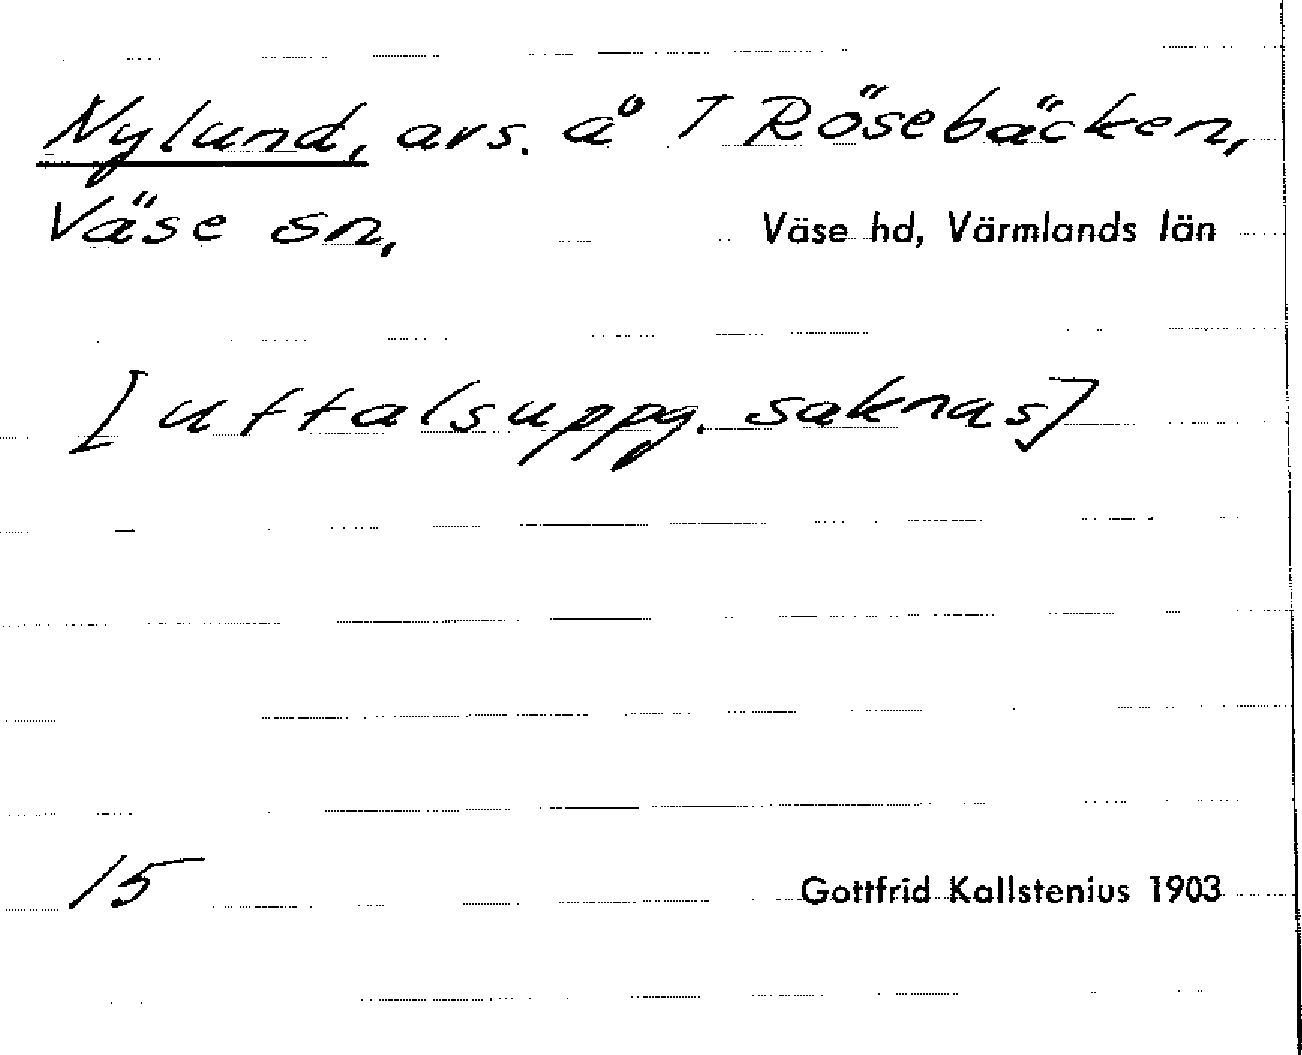 Nylund, avs. å 7 Rösebäcken,
Väse sn, Väse hd, Värmlands län
[uttalsuppg. saknas]
15 Gottfrid Kallstenius 1903